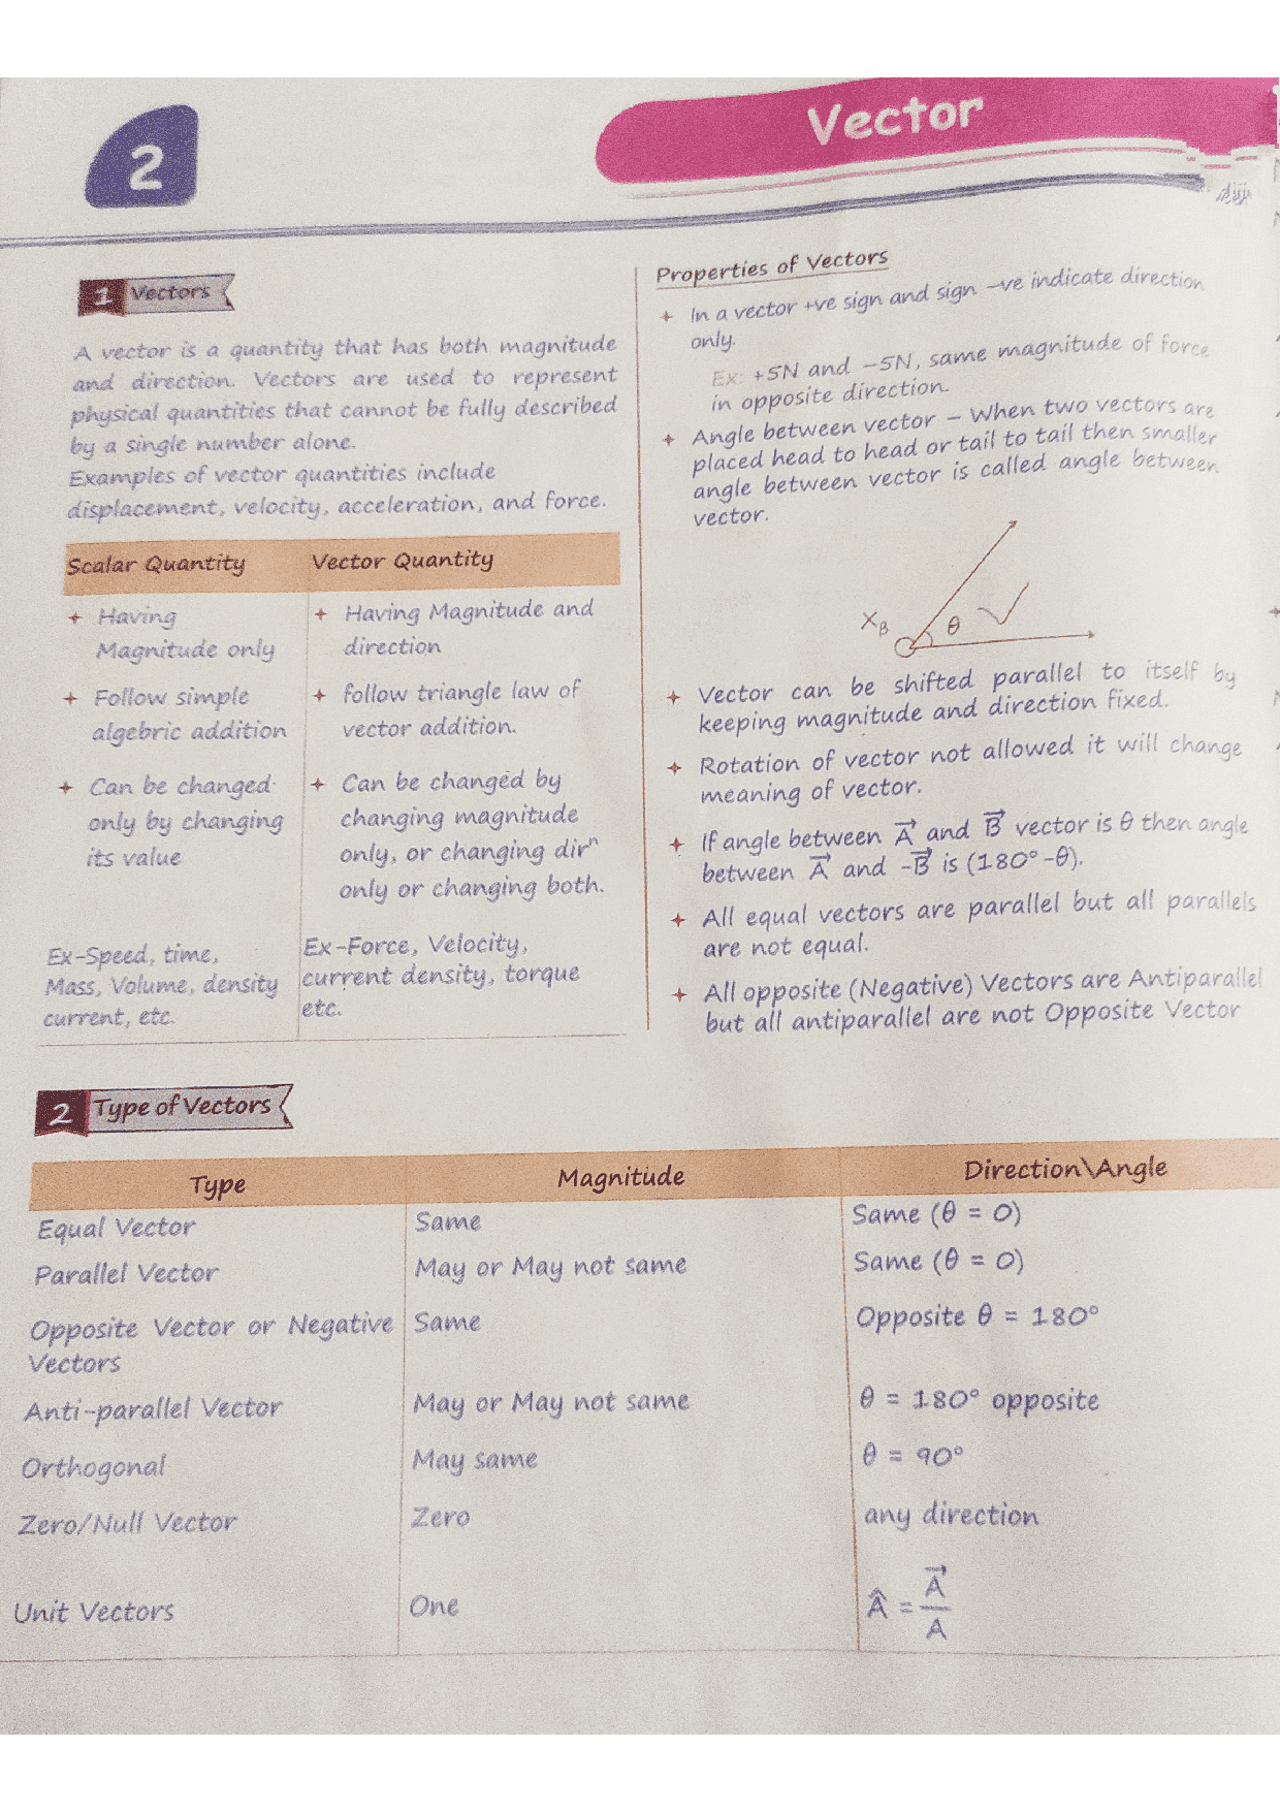 2
Vector
1 Vectors
A vector is a quantity that has both magnitude
and direction. Vectors are used to represent
physical quantities that cannot be fully described
by a single number alone.
Examples of vector quantities include
displacement, velocity, acceleration, and force.
Scalar Quantity Vector Quantity
Having
Magnitude only
Having Magnitude and
direction
Follow simple
algebric addition
follow triangle law of
vector addition.
Can be changed
only by changing
its value
Can be changed by
changing magnitude
only, or changing dirⁿ
only or changing both.
Ex-Speed, time,
Mass, Volume, density
current, etc.
Ex-Force, Velocity,
current density, torque
etc.
Properties of Vectors
In a vector +ve sign and sign –ve indicate direction
only.
Ex: +5N and –5N, same magnitude of force
in opposite direction.
Angle between vector – When two vectors are
placed head to head or tail to tail then smaller
angle between vector is called angle between
vector.
X_B θ
Vector can be shifted parallel to itself by
keeping magnitude and direction fixed.
Rotation of vector not allowed it will change
meaning of vector.
If angle between A⃗ and B⃗ vector is θ then angle
between A⃗ and -B⃗ is (180°-θ).
All equal vectors are parallel but all parallels
are not equal.
All opposite (Negative) Vectors are Antiparallel
but all antiparallel are not Opposite Vector
2 Type of Vectors
Type Magnitude Direction\Angle
Equal Vector Same Same (θ = 0)
Parallel Vector May or May not same Same (θ = 0)
Opposite Vector or Negative Same Opposite θ = 180°
Vectors
Anti-parallel Vector May or May not same θ = 180° opposite
Orthogonal May same θ = 90°
Zero/Null Vector Zero any direction
Unit Vectors One Â = A⃗/A